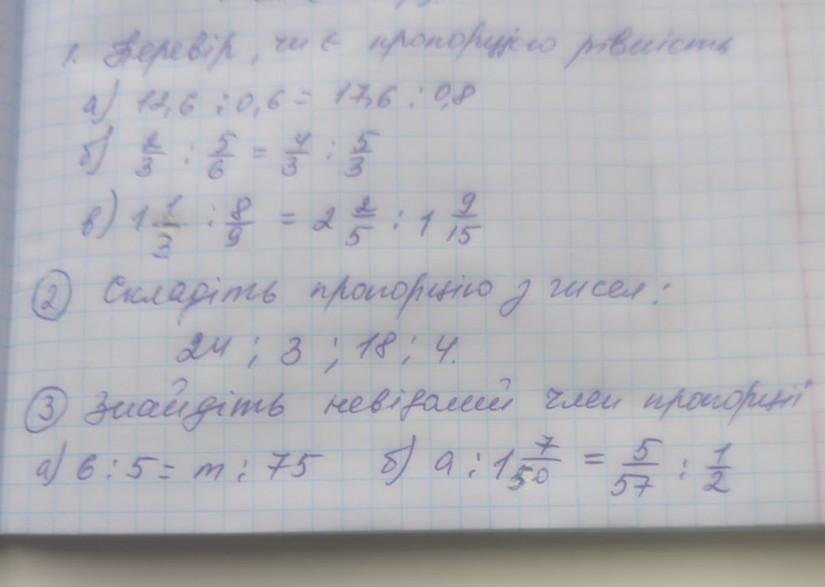 1. Перевір, чи є пропорцією рівність
а) 12,6 : 0,6 = 17,6 : 0,8
б) 2/3 : 5/6 = 4/3 : 5/3
в) 1 1/3 : 8/9 = 2 2/5 : 1 9/15
2 Складіть пропорцію з чисел:
24 ; 3 ; 18 ; 4.
3 Знайдіть невідомий член пропорції
а) 6 : 5 = m : 75 б) a : 1 7/50 = 5/57 : 1/2